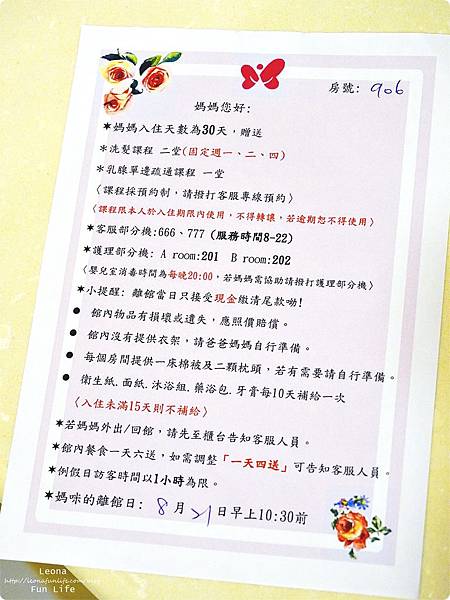 房號: 906
媽媽您好:
*媽媽入住天數為30天，贈送
*洗髮課程 二堂(固定週一、二、四)
*乳腺單邊疏通課程 一堂
〈課程採預約制，請撥打客服專線預約〉
〈課程限本人於入住期限內使用，不得轉讓，若逾期恕不得使用〉
*客服部分機:666、777 (服務時間8-22)
*護理部分機: A room:201 B room:202
〈嬰兒室消毒時間為每晚20:00，若媽媽需協助請撥打護理部分機〉
*小提醒: 離館當日只接受現金繳清尾款呦!
● 館內物品有損壞或遺失，應照價賠償。
● 館內沒有提供衣架，請爸爸媽媽自行準備。
● 每個房間提供一床棉被及二顆枕頭，若有需要請自行準備。
● 衛生紙.面紙.沐浴組.藥浴包.牙膏每10天補給一次
〈入住未滿15天則不補給〉
*若媽媽外出/回館，請先至櫃台告知客服人員。
*館內餐食一天六送，如需調整「一天四送」可告知客服人員。
*例假日訪客時間以1小時為限。
*媽咪的離館日: 8月21日早上10:30前
Leona
http://leonafunlife.com/blog
Fun Life